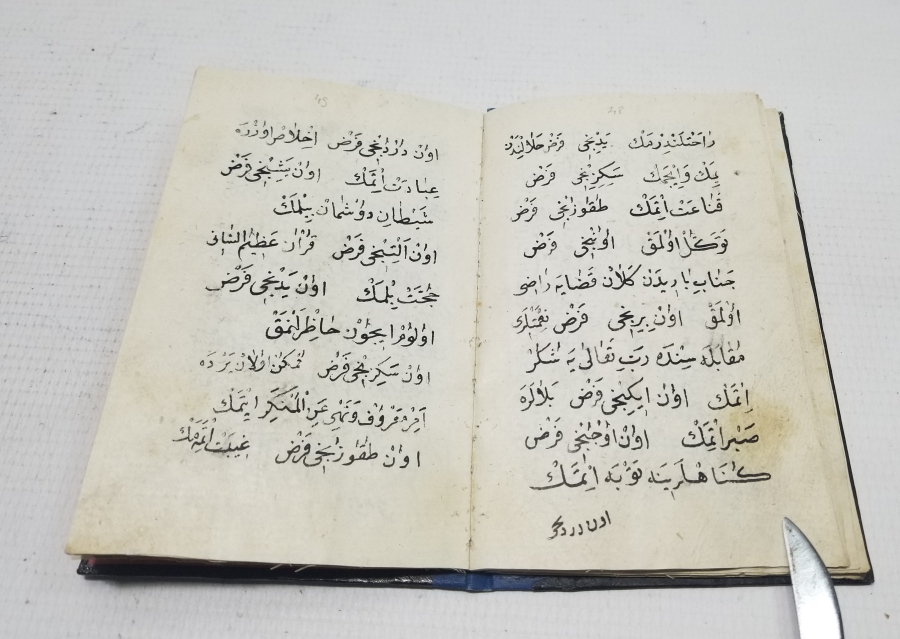 راحتلندرمك يدنجى فرض حلالندن
يمك وايچمك سكزنجى فرض
قناعت اتمك طقوزنجى فرض
توكل اولمق اوننجى فرض
جناب باريدن كلان قضايه راضى
اولمق اون برنجى فرض نعمتلرى
مقابله سنده رب تعالى يه شكر
اتمك اون ايكنجى فرض بلالره
صبر اتمك اون اوجنجى فرض
كناهلرينه توبه اتمك
اون دردنجى
49
اون دردنجى فرض اخلاص اوزره
عبادت اتمك اون بشنجى فرض
شيطان دوشمان بيلمك
اون التنجى فرض قران عظيم الشانى
حجت بلمك اون يدنجى فرض
اولوم ايچون حاظرلنمق
اون سكزنجى فرض ممكن اولان يرده
امر معروف ونهى عن المنكر ايتمك
اون طقوزنجى فرض غيبت اتمهمك